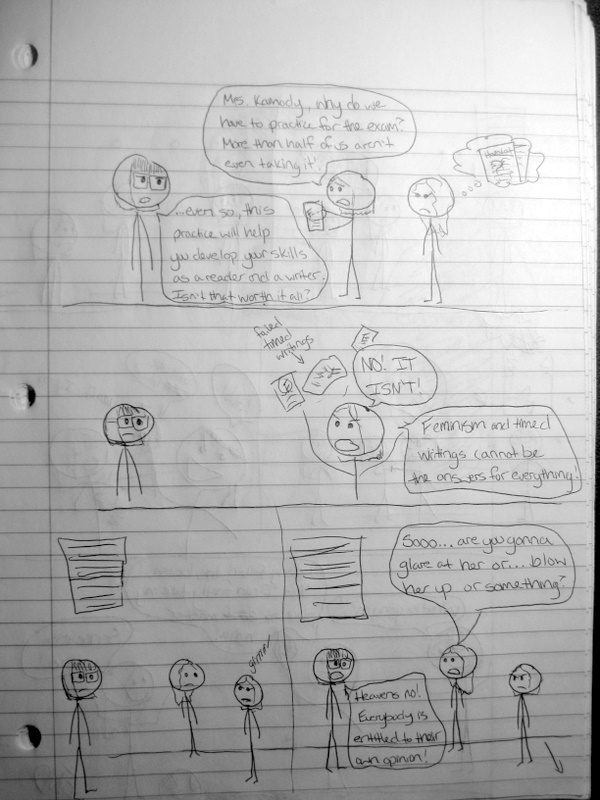 Mrs. Kamody, why do we
have to practice for the exam?
More than half of us aren't
even taking it!
...even so, this
practice will help
you develop your skills
as a reader and a writer.
Isn't that worth it all?
failed
timed
writings
F
NO! IT
ISN'T!
Feminism and timed
writings cannot be
the answers for everything!
Sooo... are you gonna
glare at her or... blow
her up or something?
Heavens no!
Everybody is
entitled to their
own opinion!